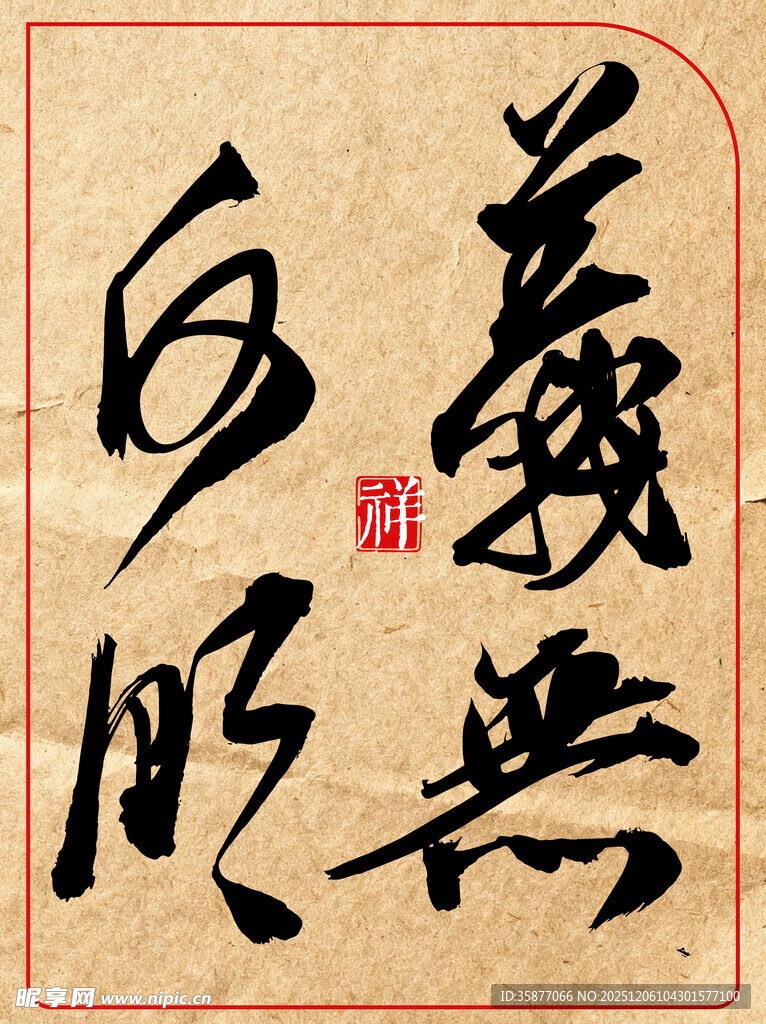 義無
反顧
祥
昵享网 www.nipic.cn
ID:35877066 NO:20251206104301577100